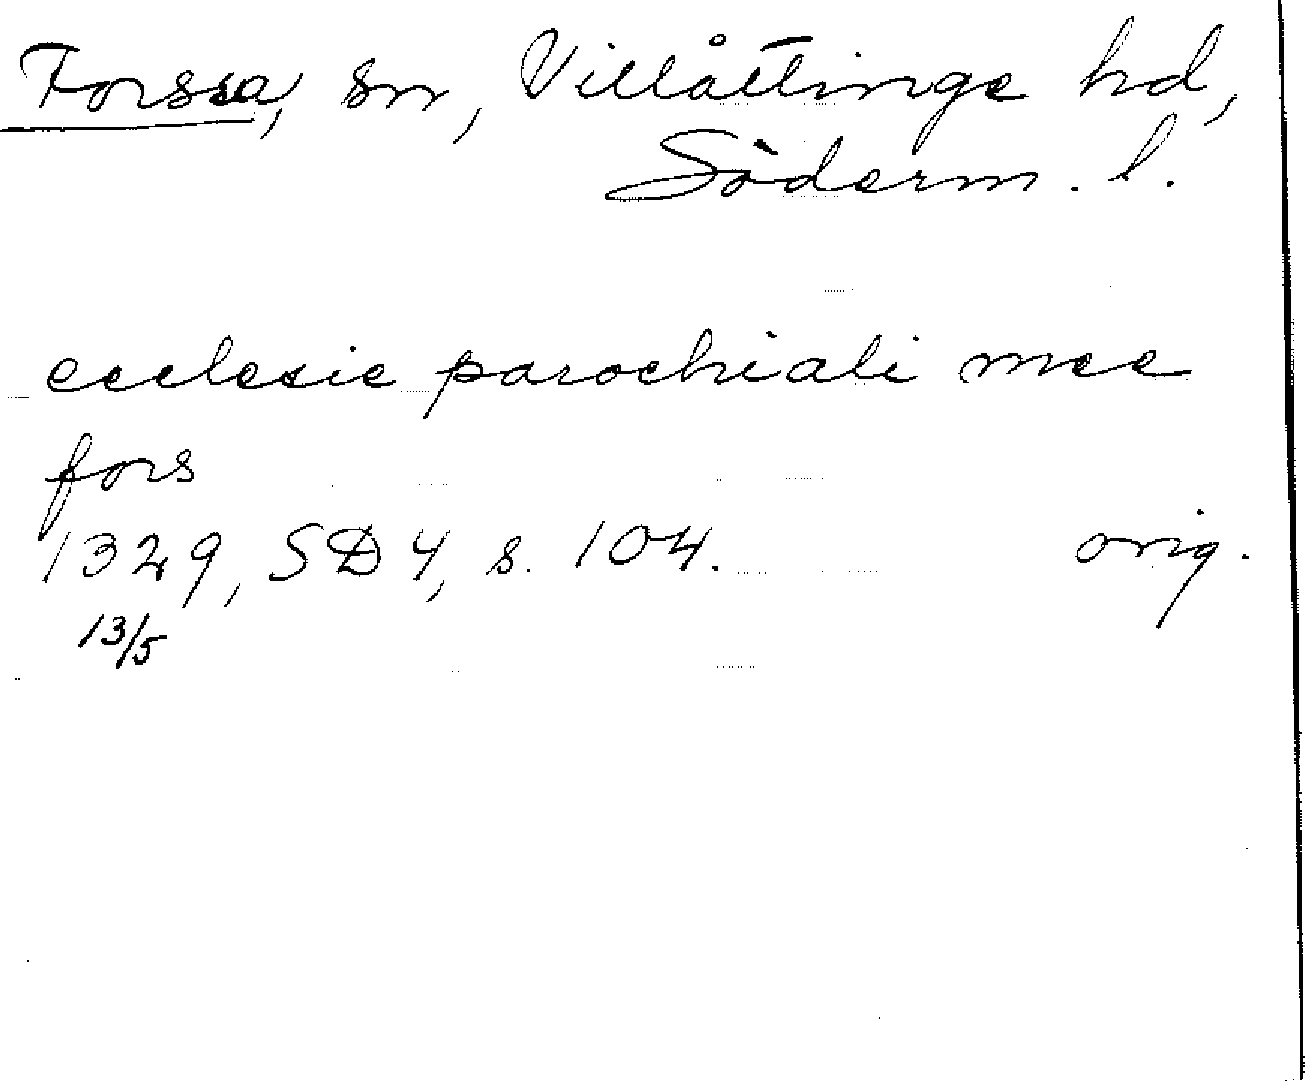 Forssa, sn, Villåttinge hd,
Söderm. l.
ecclesie parochiali mee
fors
1329, SD 4, s. 104. orig.
13/5